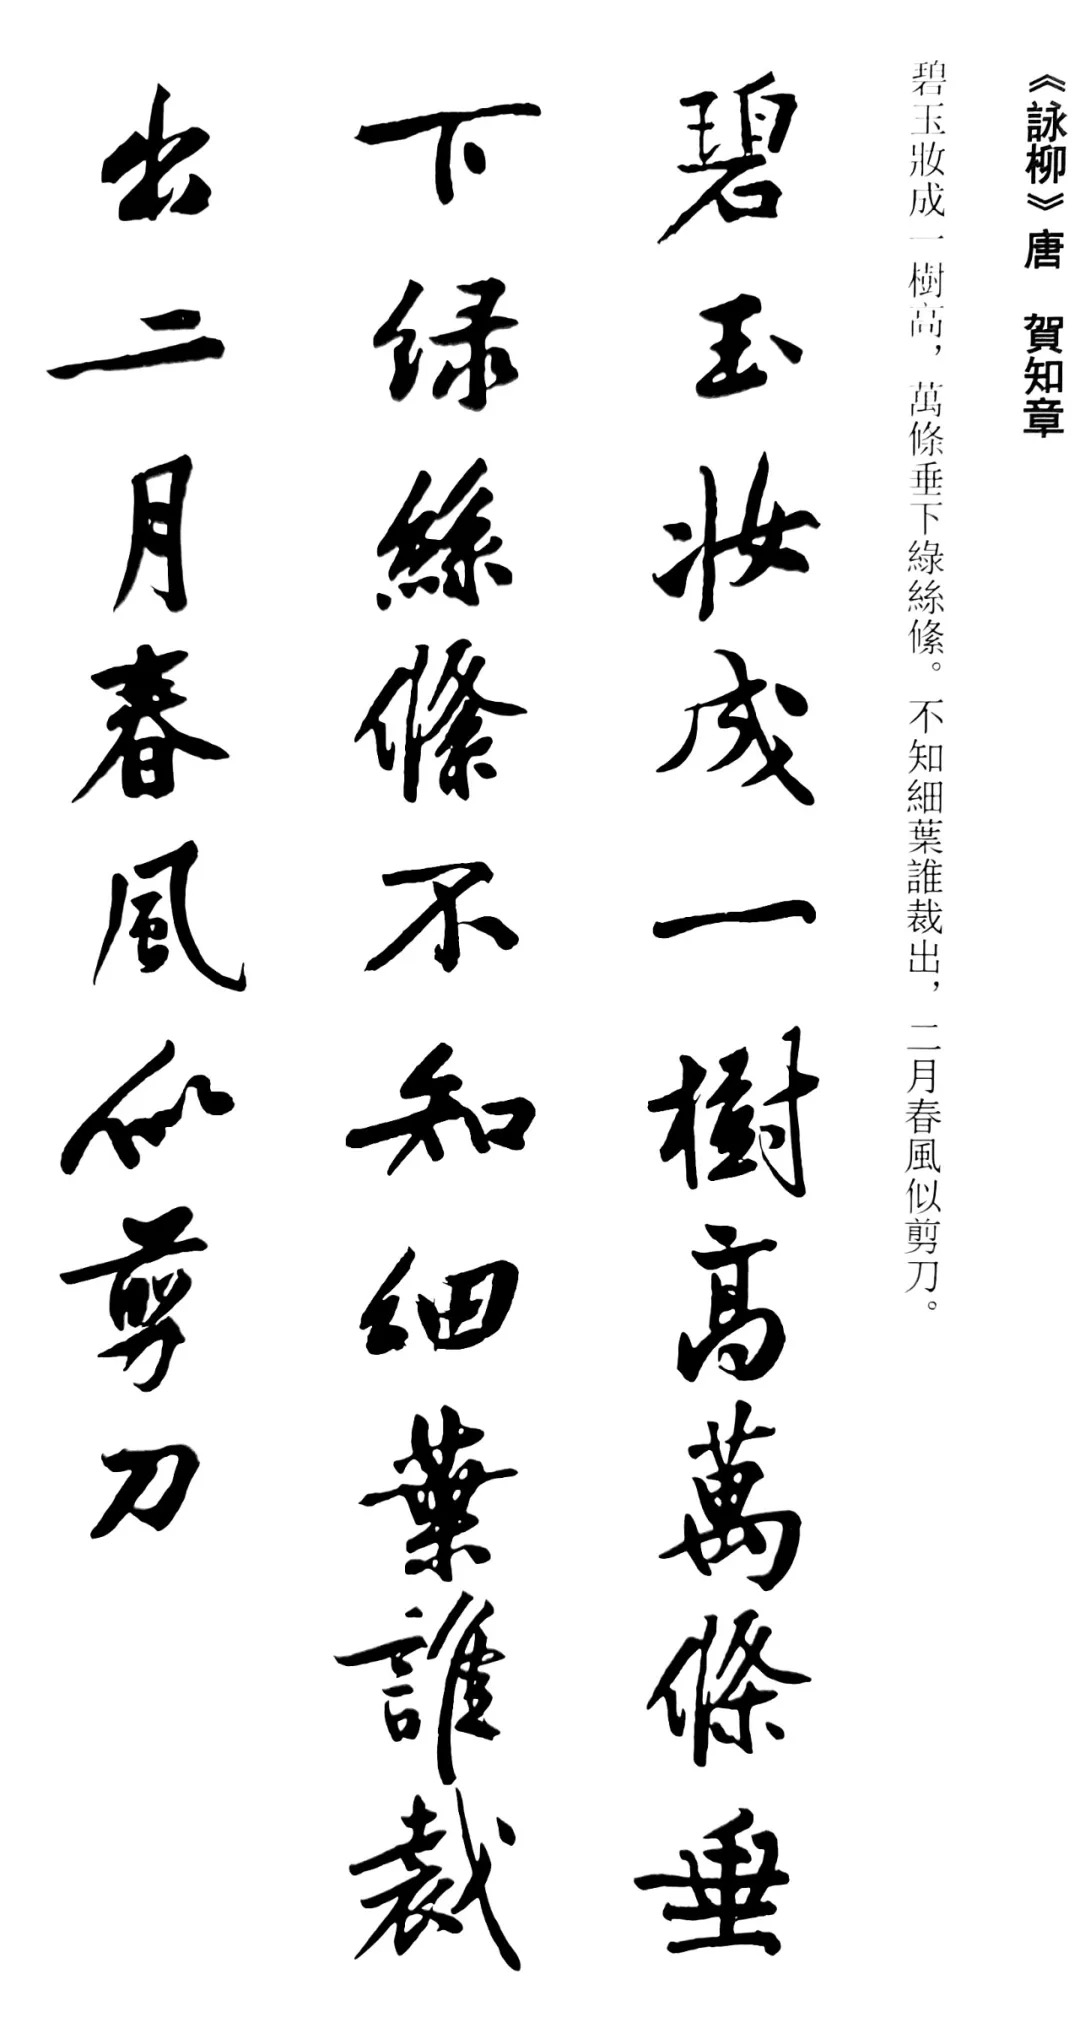 《詠柳》唐　賀知章
碧玉妝成一樹高，萬條垂下綠絲絛。不知細葉誰裁出，二月春風似剪刀。
碧玉妝成一樹高萬條垂
下绿絲絛不知細葉誰裁
出二月春風似剪刀